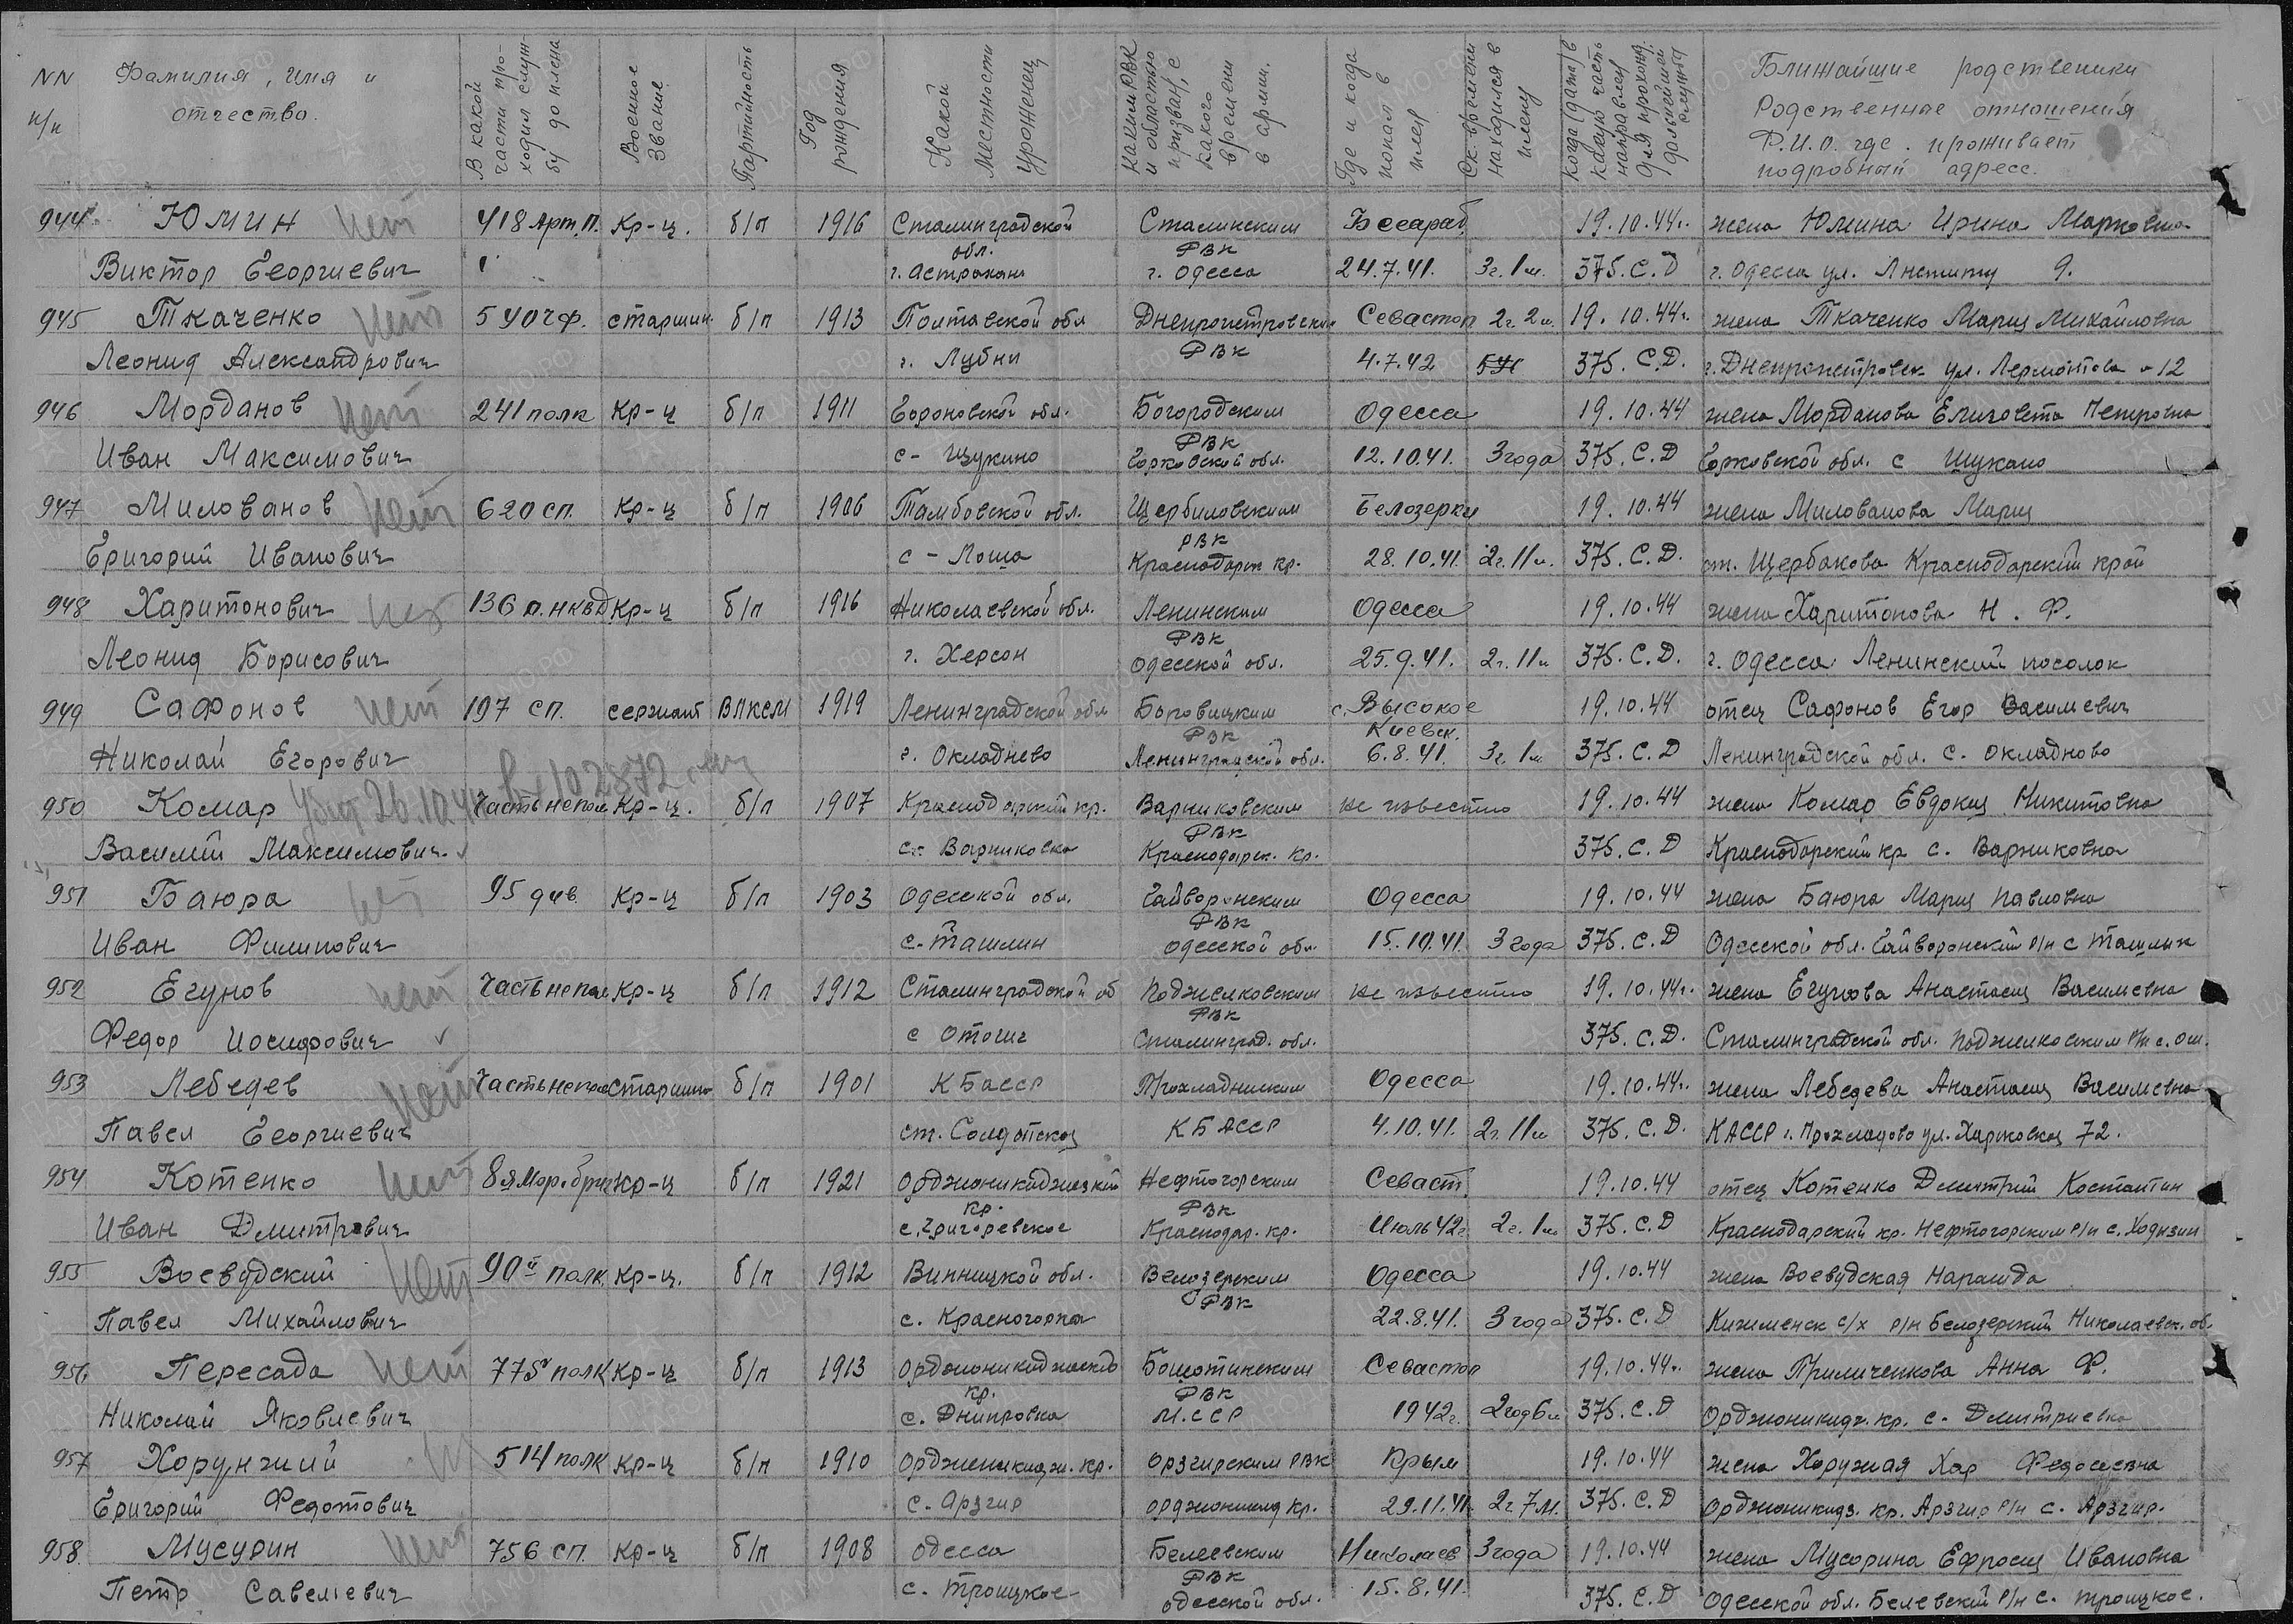 NN п/п | Фамилия, имя и отчество. | В какой части проходил службу до плена | Военное звание | Партийность | Год рождения | Какой местности уроженец | Каким РВК и областью призван, с какого времени в армии. | Где и когда попал в плен | Ск. времени находился в плену | Когда (дата) в какую часть направлен для прохожд. дальнейшей службы | Ближайшие родственики Родственное отношения Ф.И.О. где проживает подробный адресс.
944 Юмин нет 418 Арт.П. Кр-ц. б/п 1916 Сталинградской обл. Сталинским РВК Бесараб. 19.10.44г. жена Юмина Ирина Марковна
Виктор Георгиевич г. Астрахань г. Одесса 24.7.41. 3г.1м. 375.С.Д г. Одесса ул. 9.
945 Ткаченко нет старшин. б/п 1913 Полтавской обл Днепропетровским РВК Севастоп 2г.2м. 19.10.44г. жена Ткаченко Мария Михайловна
Леонид Александрович г. Лубни 4.7.42 375.С.Д. г. Днепропетровск ул. Лермонтова -12
946 Морданов нет 241 полк Кр-ц б/п 1911 Богородским РВК Одесса 19.10.44 жена Морданова Елизовета Петровна
Иван Максимович с- Щукино Горковской обл. 12.10.41. 3 года 375.С.Д Горковской обл. с Щукано
947 Милованов нет 620 сп. Кр-ц б/п 1906 Тамбовской обл. Щербиловским РВК Белозерки 19.10.44 жена Милованова Мария
Григорий Иванович с - Лоша Краснодарск кр. 28.10.41. 2г.11м. 375.С.Д. ст. Щербакова Краснодарский край
948 Харитонович нет 136 п.НКВД Кр-ц б/п 1916 Николаевской обл. Ленинским РВК Одесса 19.10.44 жена Харитонова Н. Ф.
Леонид Борисович г. Херсон Одесской обл. 25.9.41. 2г.11м 375.С.Д. г. Одесса Ленинский посолок
949 Сафонов нет 197 сп. сержант ВЛКСМ 1919 Ленинградской обл Боровицким РВК с. Высокое Киевск. 19.10.44 отец Сафонов Егор Васильевич
Николай Егорович г. Окладнево Ленинградской обл. 6.8.41. 3г.1м 375.С.Д Ленинградской обл. с. Окладново
950 Комар убит 26.10.44 102872 часть непом Кр-ц. б/п 1907 Краснодарский кр. Варниковским РВК не известно 19.10.44 жена Комар Евдокия Никитовна
Василий Максимович. с. Варниковка Краснодарск. кр. 375.С.Д Краснодарский кр с. Варниковка
951 Баюра нет 95 див. Кр-ц б/п 1903 Одесской обл. Гайворонским РВК Одесса 19.10.44 жена Баюра Мария Павловна
Иван Филипович с. Ташлин Одесской обл. 15.10.41. 3 года 375.С.Д Одесской обл. Гайворонский р/н с Ташлык
952 Егунов нет часть непом Кр-ц б/п 1912 Сталинградской об Поджелковским РВК не известно 19.10.44г. жена Егунова Анастасия Васильевна
Федор Иосифович с Сталинград. обл. 375.С.Д. Сталинградской обл. Поджелковским р/н с. Ош.
953 Лебедев нет часть непом старшина б/п 1901 КБАССР Прохладнинским Одесса 19.10.44г. жена Лебедева Анастасия Васильевна
Павел Георгиевич ст. Солдатская КБАССР 4.10.41. 2г.11м 375.С.Д. КАССР г. Прохладово ул. Харковская 72.
954 Котенко нет 8я Мор.бриг Кр-ц б/п 1921 Орджоникиджезкий кр. Нефтогорским РВК Севаст. 19.10.44 отец Котенко Дмитрий Костантин
Иван Дмитревич с. Григоревское Краснодар. кр. Июль 42г 2г.1м 375.С.Д Краснодарский кр. Нефтогорским р/н с. Ходизин
955 Воевудский нет 90й полк. Кр-ц. б/п 1912 Винницкой обл. Велозерским РВК Одесса 19.10.44 жена Воевудская
Павел Михайлович с. Красногорка 22.8.41. 3 года 375.С.Д с/х р/н Белозерский Николаевск. об.
956 Пересада нет 775й полк Кр-ц б/п 1913 Орджоникиджеско кр. РВК Севастоп 19.10.44г. жена Приличенкова Анна Ф.
Николай Яковлевич с. Днипровка М.ССР 1942г. 2год6м 375.С.Д Орджоникидз. кр. с. Дмитриевка
957 Хорунжий 514 полк Кр-ц б/п 1910 Орджоникидж. кр. Орзгирским РВК Крым 19.10.44 жена Хоружая Хар Федосеевна
Григорий Федотович с. Арзгир Орджоникид кр. 29.11.41. 2г 7м. 375.С.Д Орджоникидз. кр. Арзгир р/н с. Арзгир.
958 Мусурин нет 756 сп. Кр-ц б/п 1908 Одесса Белеевским РВК Николаев 3 года 19.10.44 жена Мусорина Ефросия Ивановна
Петр Савелиевич с. Троицкое Одесской обл. 15.8.41. 375.С.Д Одесской обл. Белевский р/н с. Троицкое.